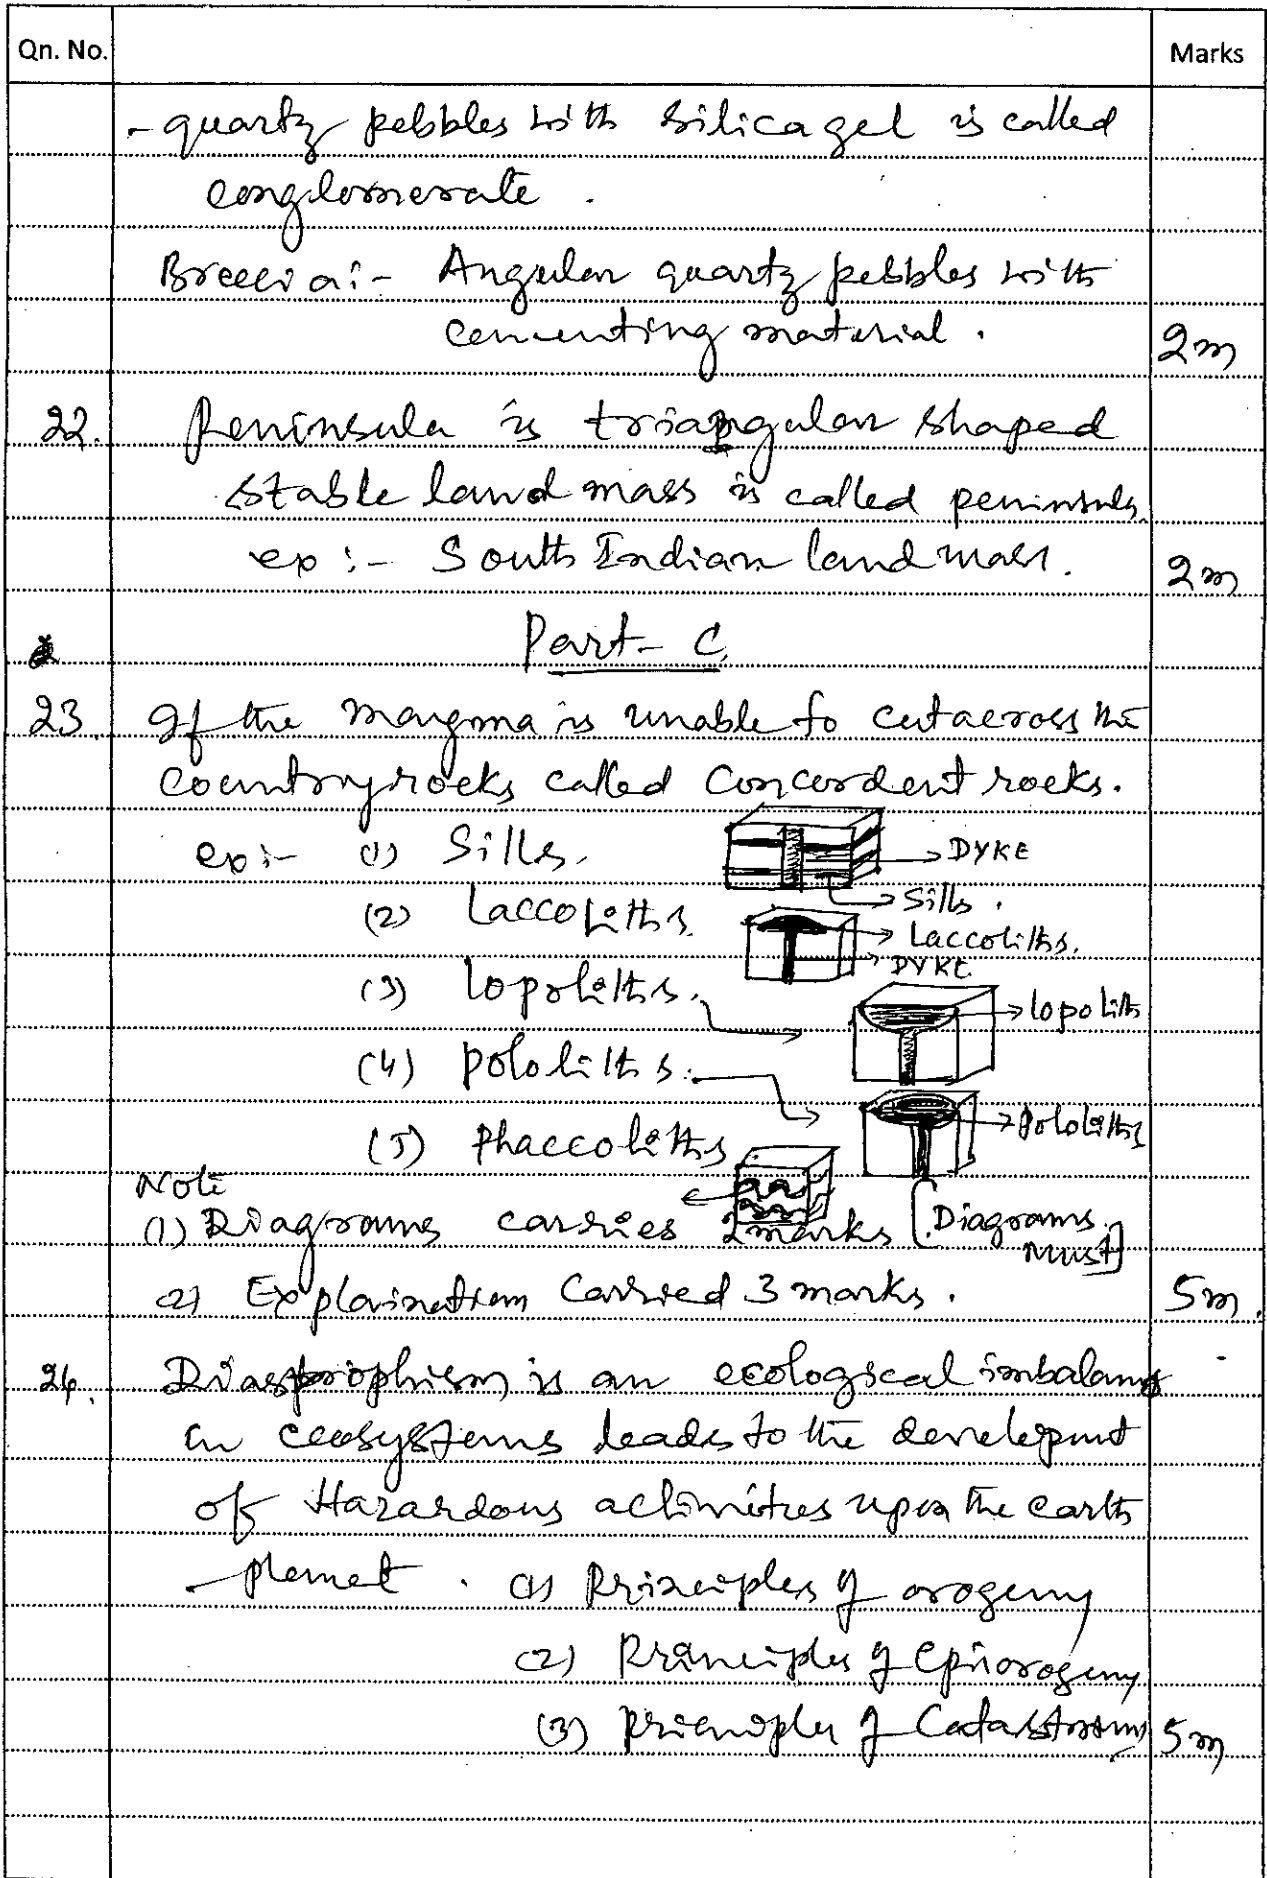 Qn. No. Marks
- quartz pebbles with silicagel is called
conglomerate .
Breccia:- Angular quartz pebbles with
cementing material . 2m
22. Peninsula is triangular shaped
stable land mass is called peninsula.
ex :- South Indian land mass. 2m
Part- C.
23. If the magma is unable to cut across the
country rocks called Concordent rocks.
ex:- (1) Sills.
DYKE
Sills .
(2) Laccoliths.
Laccoliths.
DYKE
(3) lopoliths.
lopoliths
(4) pololiths.
Pololiths
(5) Phaccoliths.
Note
(1) Diagrams carries 2marks [Diagrams Must]
(2) Explaination Carried 3 marks . 5m.
24. Diastrophism is an ecological imbalance
in ecosystems leads to the
of Hazardous activities upon the earth
planet . (1) Principles of orogeny
(2) Principles of Epiorogeny
(3) principles of 5m